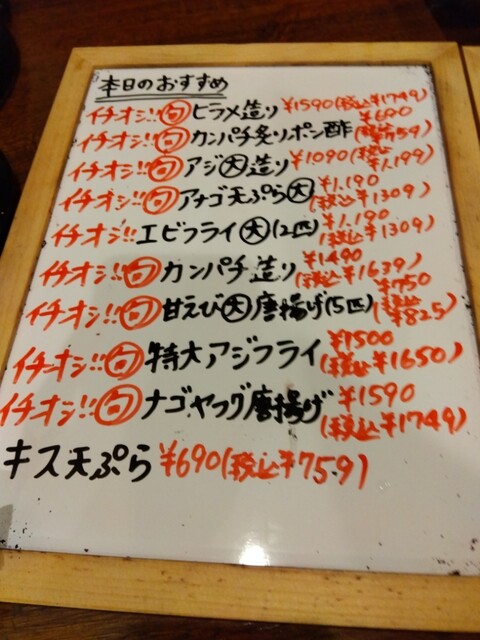 本日のおすすめ
イチオシ!!旬ヒラメ造り¥1590(税込¥1749)
イチオシ!!旬カンパチ炙りポン酢¥690(税込¥759)
イチオシ!!旬アジ大造り¥1090(税込¥1,199)
イチオシ!!旬アナゴ天ぷら大¥1,190(税込¥1309)
イチオシ!!エビフライ大(2匹)¥1,190(税込¥1309)
イチオシ!!旬カンパチ造り¥1490(税込¥1639)
イチオシ!!旬甘えび大唐揚げ(5匹)¥750(税込¥825)
イチオシ!!旬特大アジフライ¥1500(税込¥1650)
イチオシ!!旬ナゴヤフグ唐揚げ¥1590(税込¥1749)
キス天ぷら¥690(税込¥759)